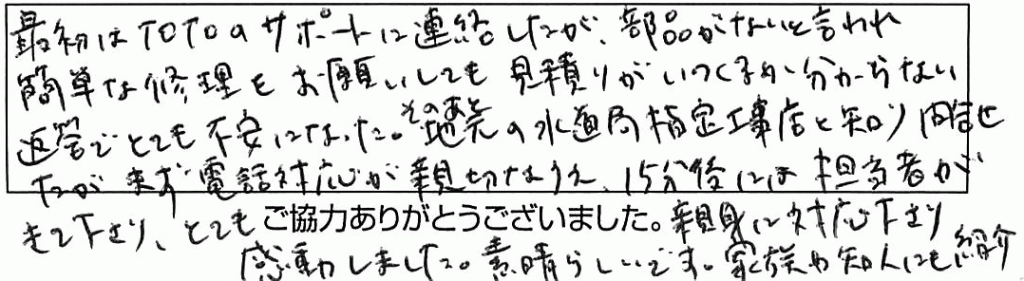 最初はTOTOのサポートに連絡したが、部品がないと言われ
簡単な修理をお願いしても見積りがいつくるかい分からない
返答でとても不安になった。そのあと地元の水道局指定工事店と知り問合せ
たが まず電話対応が親切なうえ、15分後には担当者が
きて下さり、とても
ご協力ありがとうございました。
親身に対応下さり
感動しました。素晴らしいです。家族や知人にも紹介